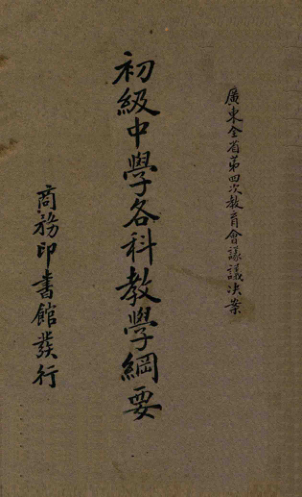 廣東全省第四次教育會議議决案
初級中學各科教學綱要
商務印書館發行